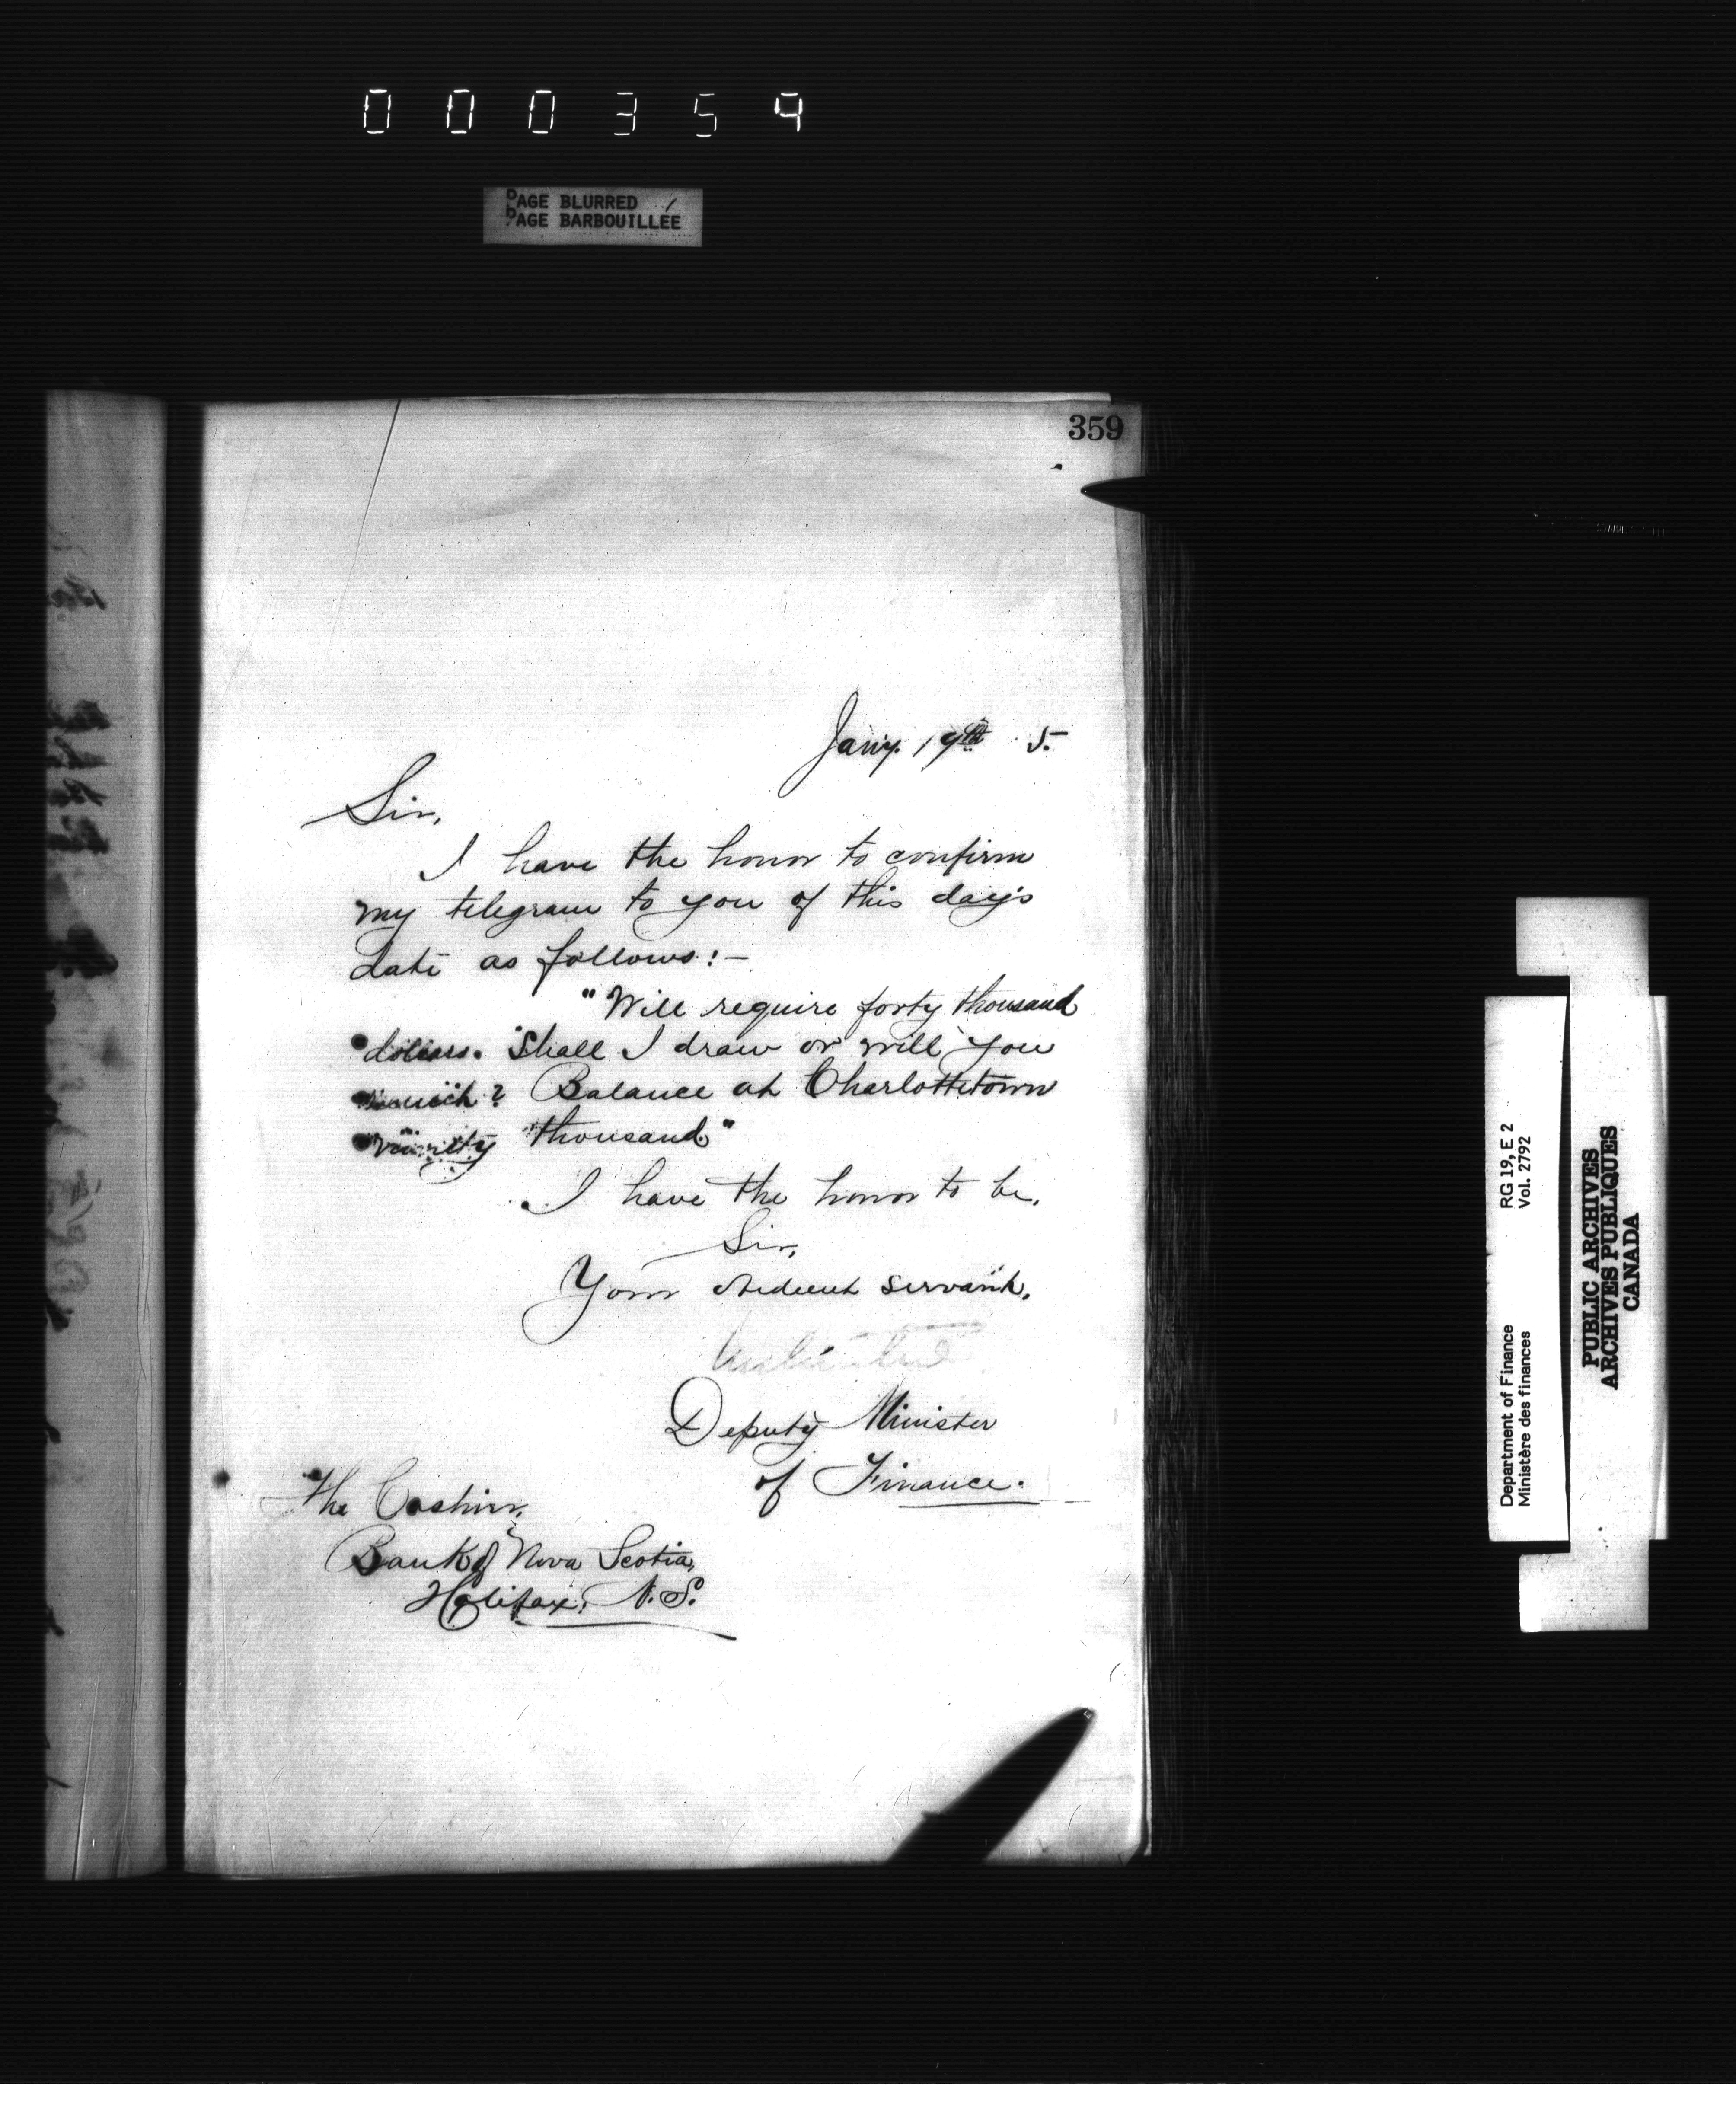 000354
PAGE BLURRED
PAGE BARBOUILLÉE
359
Jany. 19th 5.
Sir,
I have the honor to confirm
my telegram to you of this day's
date as follows:-
"Will require forty thousand
dollars. Shall I draw or will you
remit? Balance at Charlottetown
ninety thousand."
I have the honor to be,
Sir,
Your obedient servant,
Deputy Minister
of Finance.
The Cashier,
Bank of Nova Scotia,
Halifax, N.S.
Department of Finance
Ministère des finances
RG 19, E 2
Vol. 2792
PUBLIC ARCHIVES
ARCHIVES PUBLIQUES
CANADA